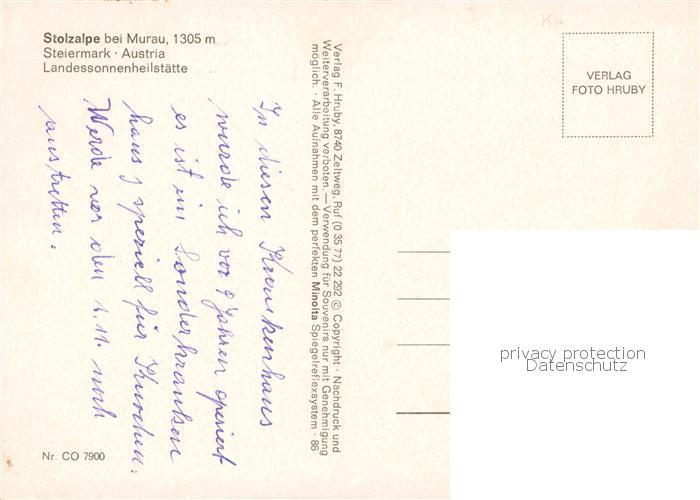 Stolzalpe bei Murau, 1305 m
Steiermark · Austria
Landessonnenheilstätte
In diesen Krankenhaus
wurde ich vor 9 Jahren operiert
es ist ein Sonderkranken
haus speziell für Knochen.
Werde vor den 1.11. noch
austretten.
Nr. CO 7900
Verlag F. Hruby, 8740 Zeltweg, Ruf (0 35 77) 22 292 © Copyright · Nachdruck und
Weiterverarbeitung verboten. — Verwendung für Souvenirs nur mit Genehmigung
möglich. · Alle Aufnahmen mit dem perfekten Minolta Spiegelreflexsystem · 86
KH
VERLAG
FOTO HRUBY
privacy protection
Datenschutz